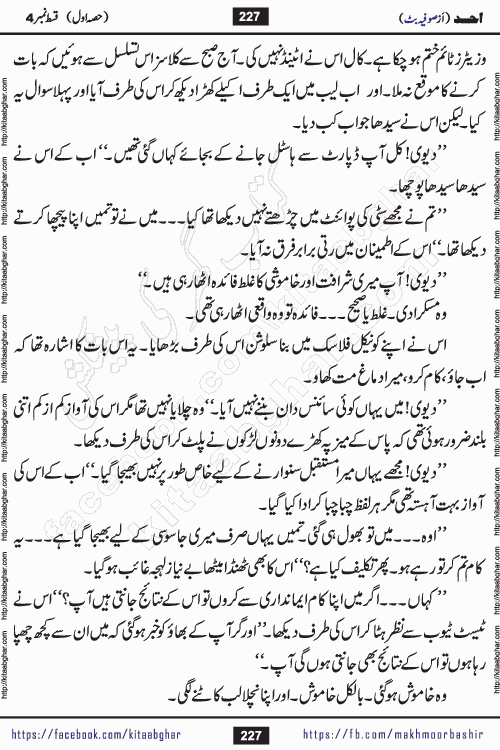 احد (از صوفیہ بٹ) 227 (حصہ اول) قسط نمبر 4
وزیٹرز ٹائم ختم ہو چکا ہے۔ کال اس نے اٹینڈ نہیں کی۔ آج صبح سے کلاسز اس تسلسل سے ہوئیں کہ بات
کرنے کا موقع نہ ملا۔ اور اب لیب میں ایک طرف اکیلے کھڑا دیکھ کر اس کی طرف آیا اور پہلا سوال یہ
کیا۔ لیکن اس نے سیدھا جواب کب دیا۔
’’دیوی! کل آپ ڈپارٹ سے ہاسٹل جانے کے بجائے کہاں گئی تھیں۔‘‘ اب کے اس نے
سیدھا سیدھا پوچھا۔
’’تم نے مجھے سٹی کی پوائنٹ میں چڑھتے نہیں دیکھا تھا کیا۔۔۔ میں نے تو تمہیں اپنا پیچھا کرتے
دیکھا تھا۔‘‘ اس کے اطمینان میں رتی برابر فرق نہ آیا۔
’’دیوی! آپ میری شرافت اور خاموشی کا غلط فائدہ اٹھا رہی ہیں۔‘‘
وہ مسکرا دی۔ غلط یا صحیح۔۔۔ فائدہ تو وہ واقعی اٹھا رہی تھی۔
اس نے اپنے کونیکل فلاسک میں بنا سلوشن اس کی طرف بڑھایا۔ یہ اس بات کا اشارہ تھا کہ
اب جاؤ، کام کرو، میرا دماغ مت کھاؤ۔
’’دیوی! میں یہاں کوئی سائنس دان بننے نہیں آیا۔‘‘ وہ چلایا نہیں تھا مگر اس کی آواز کم از کم اتنی
بلند ضرور ہوئی تھی کہ پاس کے میز پہ کھڑے دونوں لڑکوں نے پلٹ کر اس کی طرف دیکھا۔
’’دیوی! مجھے یہاں میرا مستقبل سنوارنے کے لیے خاص طور پر نہیں بھیجا گیا۔‘‘ اب کے اس کی
آواز بہت آہستہ تھی مگر ہر لفظ چبا چبا کر ادا کیا گیا۔
’’اوہ۔۔۔ میں تو بھول ہی گئی۔ تمہیں یہاں صرف میری جاسوسی کے لیے بھیجا گیا ہے۔۔۔ یہ
کام تم کر تو رہے ہو۔ پھر تکلیف کیا ہے؟‘‘ اس کا بھی ٹھنڈا میٹھا بے نیاز لہجہ غائب ہو گیا۔
’’کہاں۔۔۔ اگر میں اپنا کام ایمانداری سے کروں تو اس کے نتائج جانتی ہیں آپ؟‘‘ اس نے
ٹیسٹ ٹیوب سے نظر ہٹا کر اس کی طرف دیکھا۔ ’’اور گر آپ کے بھاؤ کو خبر ہو گئی کہ میں ان سے کچھ چھپا
رہا ہوں تو اس کے نتائج بھی جانتی ہوں گی آپ۔‘‘
وہ خاموش ہو گئی۔ بالکل خاموش۔ اور اپنا نچلا لب کاٹنے لگی۔
https://facebook.com/kitaabghar 227 https://fb.com/makhmoorbashir
http://kitaabghar.com